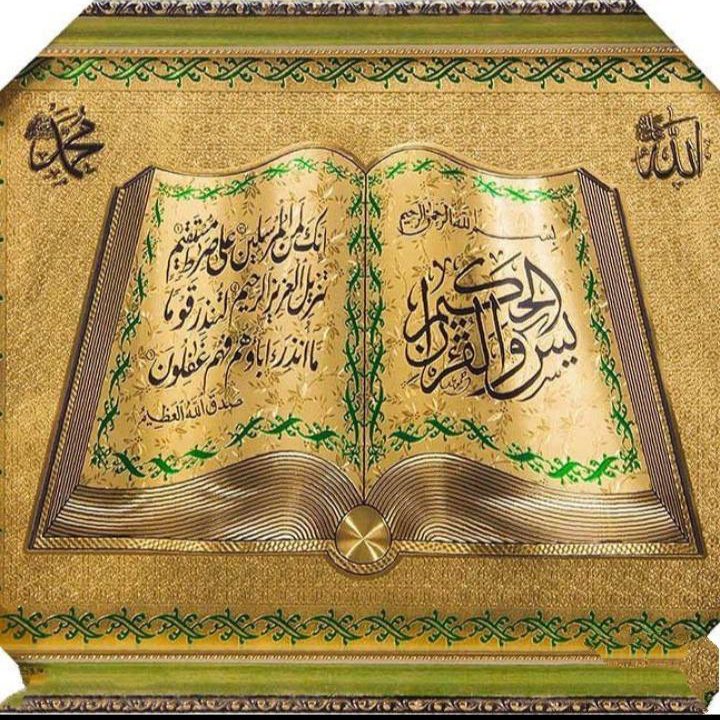 الله جل جلاله
محمد
بسم الله الرحمن الرحيم
يس والقرآن الحكيم
انك لمن المرسلين على صراط مستقيم
تنزيل العزيز الرحيم لتنذر قوما
ما انذر اباؤهم فهم غفلون
صدق الله العظيم